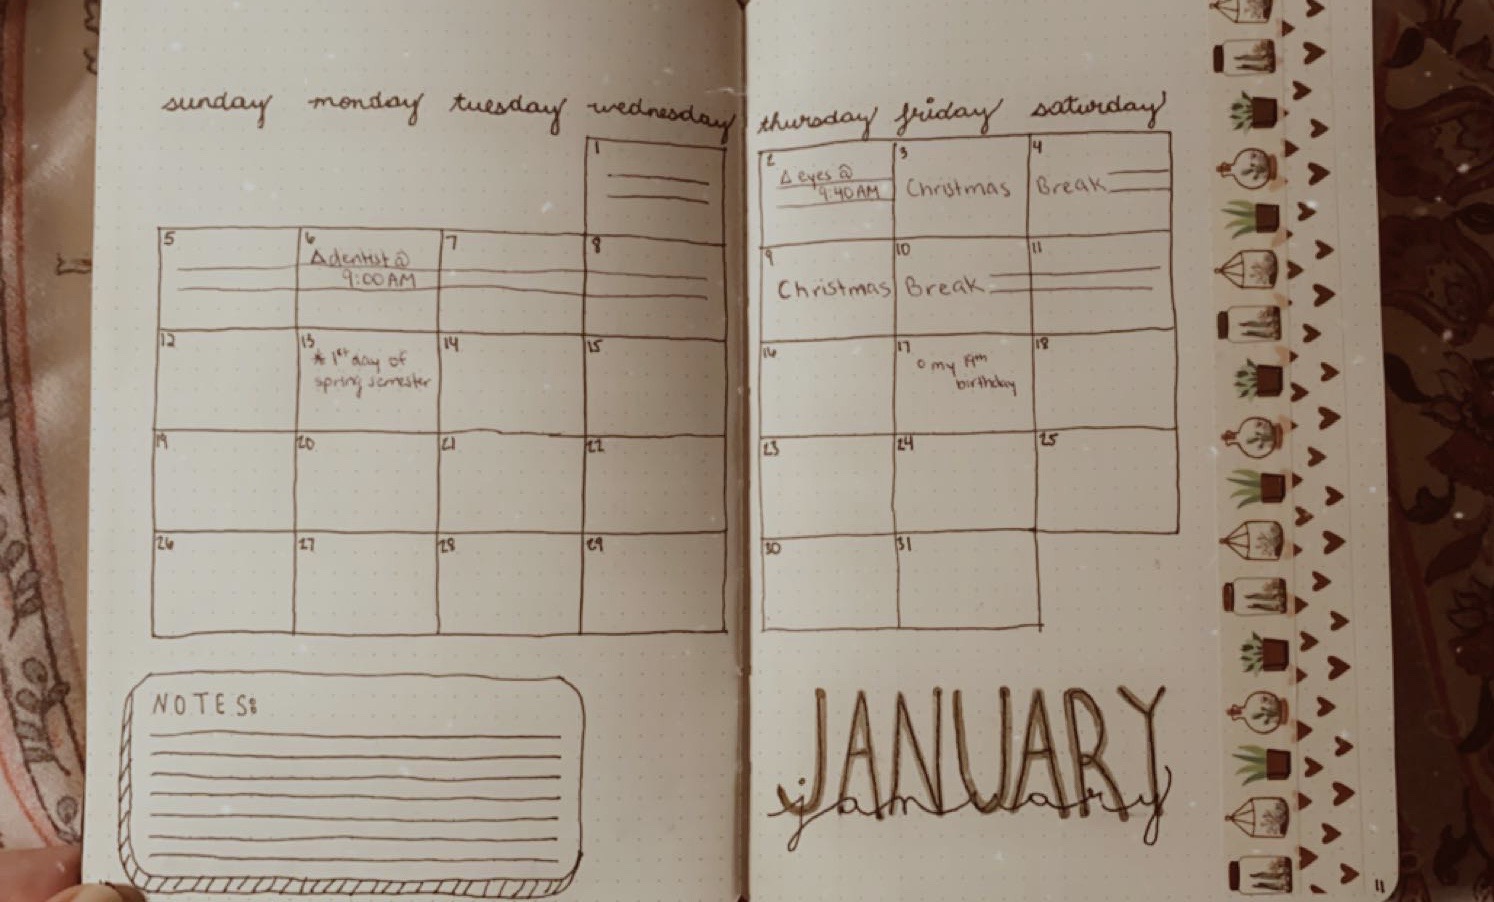 sunday monday tuesday wednesday thursday friday saturday
1 2 3 4
Δ eyes @
9:40 AM
Christmas Break
5 6 7 8 9 10 11
Δ dentist @
9:00 AM
Christmas Break
12 13 14 15 16 17 18
* 1st day of
spring semester
o my 19th
birthday
19 20 21 22 23 24 25
26 27 28 29 30 31
NOTES:
JANUARY
january
11